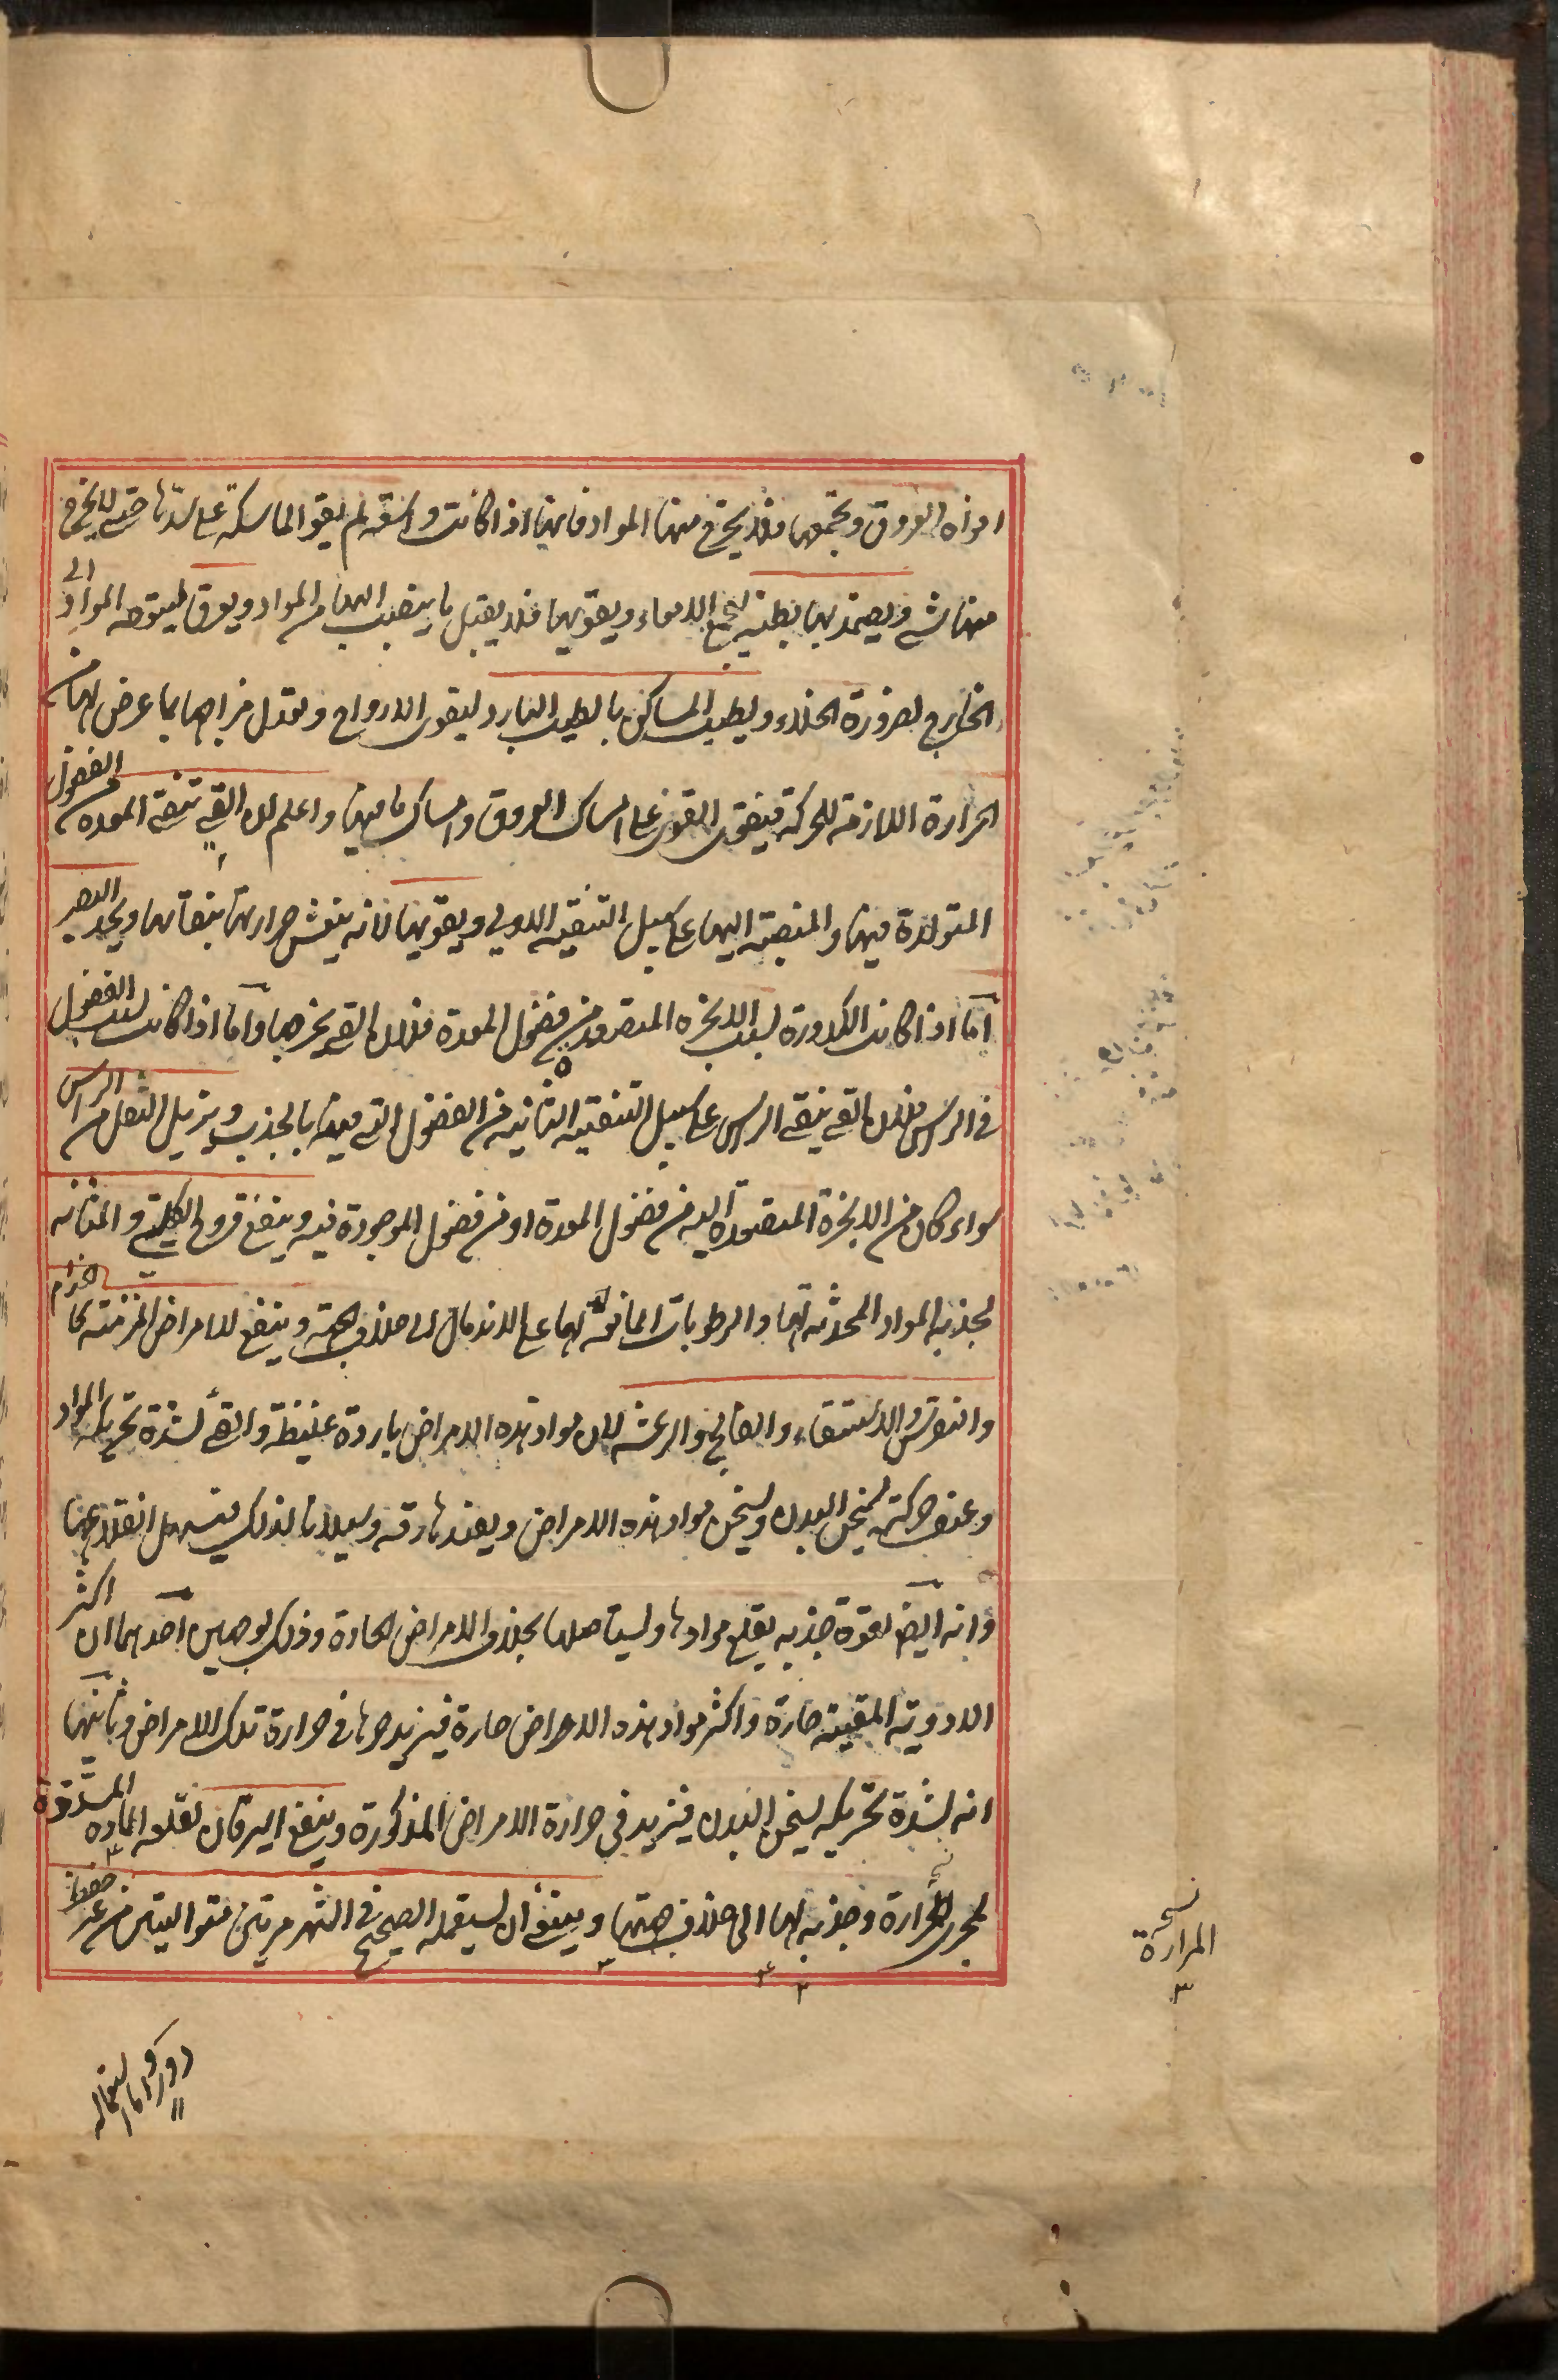 افواه العروق ويجمعها فلا يخرج منها المواد فانها اذا كانت واسعة لم يقو الماسكة على سدها حتى لا يخرج
منها شى ويضمد بها بطنه لتجمع الامعاء ويقويها فلا يقبل ما ينصب اليها من المواد ويعرق ليتوجه المواد الى
الخارج لضرورة الخلاء ويطيب المساكن بالطيب البارد ليقوى الارواح ويعدل مزاجها بما عرض لها من
الحرارة اللازمة للحركة فيقوى القوى على امساك العروق وامساك ما فيها واعلم ان القئ ينقى المعدة من الفضول
المتولدة فيها والمنصبة اليها على سبيل التنقية الاولى ويقويها لانه ينعش حرارتها بنقائها ويحد البصر
اما اذا كانت الكدورة لسبب الابخرة المتصعدة من فضول المعدة فلان القئ يخرجها واما اذا كانت لسبب الفضول
فى الراس فلان القئ ينقى الراس على سبيل التنقية الثانية من الفضول التى فيها بالجذب ويزيل الثقل من الراس
سواء كان من الابخرة المتصعدة اليه من فضول المعدة او من فضول الموجودة فيه وينفع قروح الكلية والمثانة
لجذبه المواد المحدثة لها والرطوبات المانعة لها على الاندمال الى خلاف الجهة وينفع للامراض المزمنة كالجذام
والنقرس والاستسقاء والفالج والرعشة لان مواد هذه الامراض باردة غليظة والقئ لشدة تحريكه المواد
وعنف حركته يسخن البدن ويسخن مواد هذه الامراض ويفيدها رقة وسيلانا لذلك فيسهل انقلاعها
وانه ايضا لقوة جذبه يقلع موادها ويستاصلها بخلاف الامراض الحادة وذلك لوجهين احدهما ان اكثر
الادوية المقيئة حارة واكثر مواد هذه الامراض حارة فيزيد حرها فى حرارة تلك الامراض وثانيها
انه لشدة تحريكه يسخن البدن فيزيد فى حرارة الامراض المذكورة وينفع اليرقان لقلعه المادة المسددة
لمجرى الحرارة وجذبه لها الى خلاف جهتها وينبغى ان يستعمله الصحيح فى الشهر مرتين متواليتين من غير حفظ
نسخه
المرارة
دور